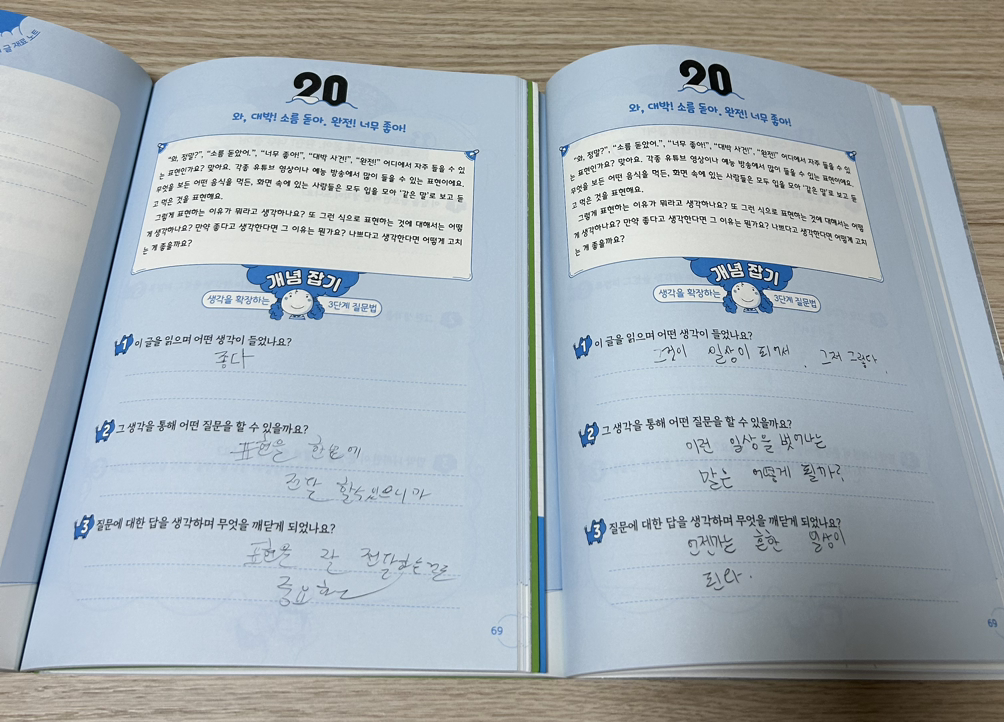 글 재료 노트
20
와, 대박! 소름 돋아. 완전! 너무 좋아!
“와, 정말?”, “소름 돋았어.”, “너무 좋아!”, “대박 사건!”, “완전!” 어디에서 자주 들을 수 있
는 표현인가요? 맞아요. 각종 유튜브 영상이나 예능 방송에서 많이 들을 수 있는 표현이에요.
무엇을 보든 어떤 음식을 먹든, 화면 속에 있는 사람들은 모두 입을 모아 ‘같은 말’로 보고 듣
고 먹은 것을 표현해요.
그렇게 표현하는 이유가 뭐라고 생각하나요? 또 그런 식으로 표현하는 것에 대해서는 어떻
게 생각하나요? 만약 좋다고 생각한다면 그 이유는 뭔가요? 나쁘다고 생각한다면 어떻게 고치
는 게 좋을까요?
개념 잡기
생각을 확장하는 3단계 질문법
1 이 글을 읽으며 어떤 생각이 들었나요?
좋다
2 그 생각을 통해 어떤 질문을 할 수 있을까요?
표현을 한번에
전달 할수있으니까
3 질문에 대한 답을 생각하며 무엇을 깨닫게 되었나요?
표현을 잘 전달하는것은
중요
69
20
와, 대박! 소름 돋아. 완전! 너무 좋아!
“와, 정말?”, “소름 돋았어.”, “너무 좋아!”, “대박 사건!”, “완전!” 어디에서 자주 들을 수 있
는 표현인가요? 맞아요. 각종 유튜브 영상이나 예능 방송에서 많이 들을 수 있는 표현이에요.
무엇을 보든 어떤 음식을 먹든, 화면 속에 있는 사람들은 모두 입을 모아 ‘같은 말’로 보고 듣
고 먹은 것을 표현해요.
그렇게 표현하는 이유가 뭐라고 생각하나요? 또 그런 식으로 표현하는 것에 대해서는 어떻
게 생각하나요? 만약 좋다고 생각한다면 그 이유는 뭔가요? 나쁘다고 생각한다면 어떻게 고치
는 게 좋을까요?
개념 잡기
생각을 확장하는 3단계 질문법
1 이 글을 읽으며 어떤 생각이 들었나요?
그것이 일상이 되어서, 그저 그렇다.
2 그 생각을 통해 어떤 질문을 할 수 있을까요?
이런 일상을 벗어나는
말은 어떻게 될까?
3 질문에 대한 답을 생각하며 무엇을 깨닫게 되었나요?
언젠가는 흔한 일상이
된다.
69